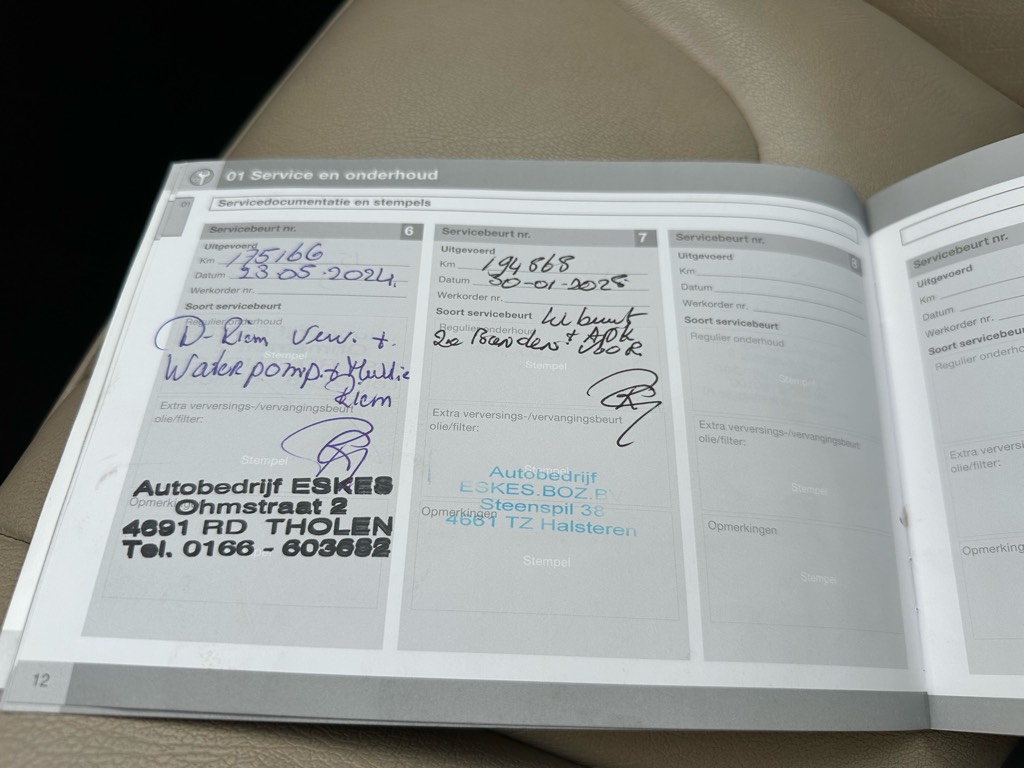 01 Service en onderhoud
01
Servicedocumentatie en stempels
Servicebeurt nr. 6
Uitgevoerd
Km 175166
Datum 23-05-2024.
Werkorder nr.
Soort servicebeurt
Regulier onderhoud
D-Riem Verv. +
Stempel
Waterpomp. + Multie
Riem
Extra verversings-/vervangingsbeurt
olie/filter:
Stempel
Autobedrijf ESKES
Opmerkingen
Ohmstraat 2
4691 RD THOLEN
Tel. 0166 - 603682
Servicebeurt nr. 7
Uitgevoerd
Km 194868
Datum 30-01-202
Werkorder nr.
Soort servicebeurt beurt
Regulier onderhoud
2x Banden + APK
VOOR
Stempel
Extra verversings-/vervangingsbeurt
olie/filter:
Stempel
Autobedrijf
ESKES.BOZ.B
Steenspil 38
Opmerkingen
4661 TZ Halsteren
Stempel
Servicebeurt nr. 8
Uitgevoerd
Km
Datum
Werkorder nr.
Soort servicebeurt
Regulier onderhoud:
Stempel
Extra verversings-/vervangingsbeurt
olie/filter:
Stempel
Opmerkingen
Stempel
Servicebeurt nr.
Uitgevoerd
Km
Datum
Werkorder nr.
Soort servicebeurt
Regulier onderho
Extra ververs
olie/filter:
Opmerking
12